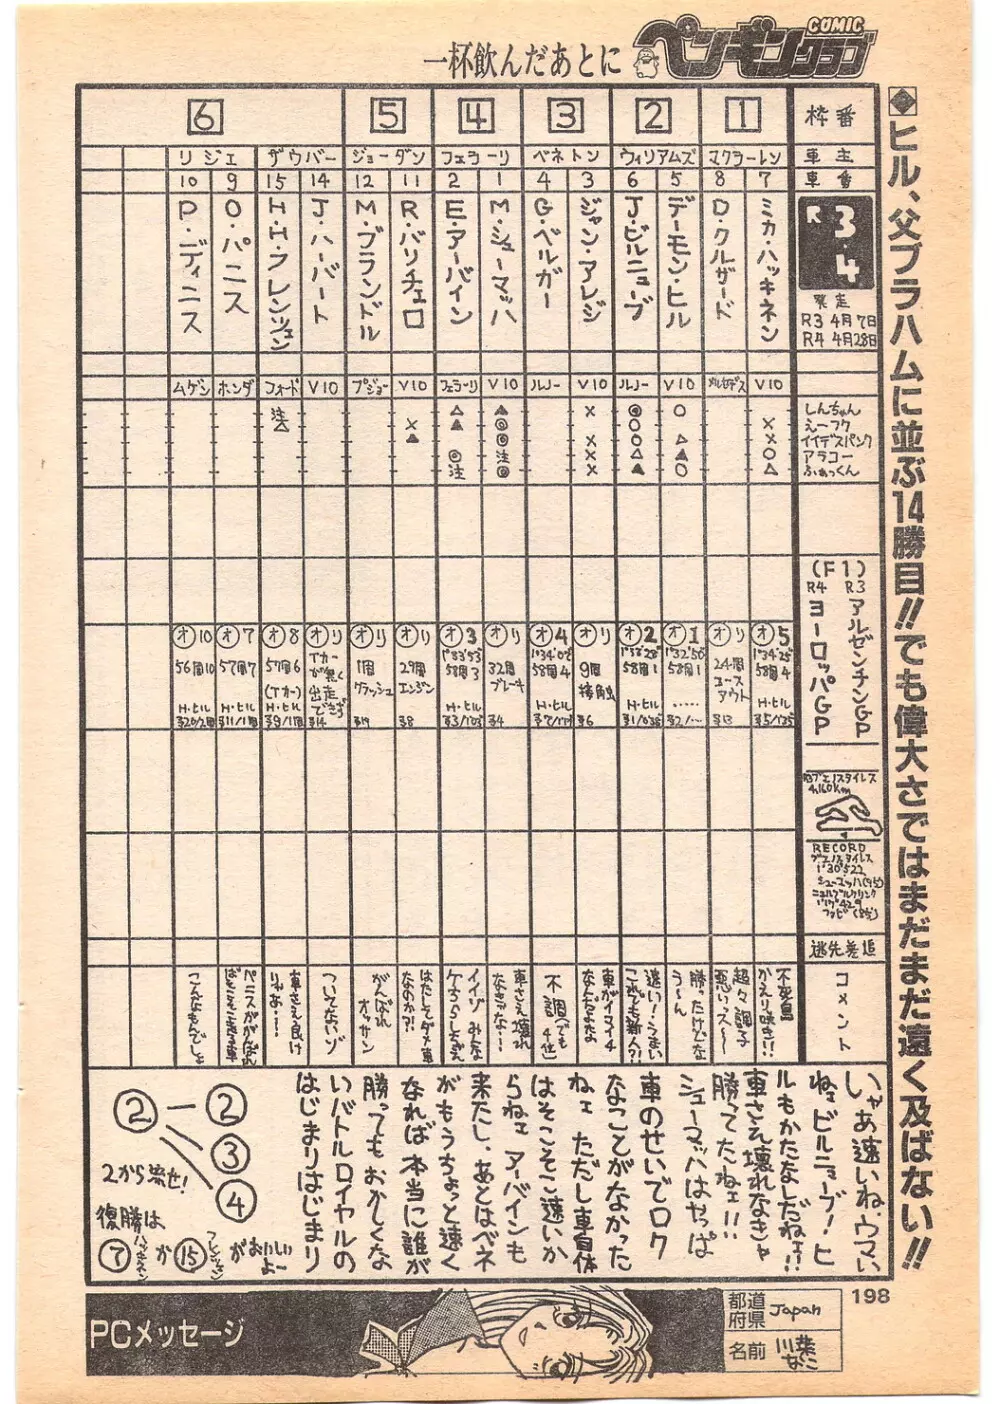 COMIC
ペンギンクラブ
一杯飲んだあとに
ヒル、父ブラハムに並ぶ14勝目!!でも偉大さではまだまだ遠く及ばない!!
枠番
1
2
3
4
5
6
車主
マクラーレン
ウィリアムズ
ベネトン
フェラーリ
ジョーダン
ザウバー
リジェ
車番
7
8
5
6
3
4
1
2
11
12
14
15
9
10
R3・4
R3 4月7日
R4 4月28日
ミカ・ハッキネン
D・クルザード
デーモン・ヒル
J・ビルニューブ
ジャン・アレジ
G・ベルガー
M・シューマッハ
E・アーバイン
R・バリチェロ
M・ブランドル
J・ハーバート
H・H・フレンツェン
O・パニス
P・ディニス
V10
メルセデス
V10
ルノー
V10
ルノー
V10
フェラーリ
V10
プジョー
V10
フォード
ホンダ
ムゲン
しんちゃん
えーフク
イイデスパンク
アラコー
ふぁっくん
(F1)
R3 アルゼンチンGP
R4 ヨーロッパGP
オ5
58周4
オリ
24周
コースアウト
オ1
58周1
オ2
58周1
オリ
9周
接触
オ4
58周4
オリ
32周
ブレーキ
オ3
58周3
オリ
29周
エンジン
オリ
1周
クラッシュ
オリ
Tカーが無く出走できず
オ8
57周6
(Tカー)
オ7
57周7
オ10
56周10
ブエノスアイレス
RECORD
ブエノスアイレス
1'30"522
シューマッハ(95)
ニュルブルクリンク
逃先差追
コメント
不死鳥かえり咲き!!
超々調子悪いス〜〜
勝ったけどなう〜ん
速い!うまいこれでも新人?!
車がイマイチなんだよな
不調(でも4位)
車さえ壊れなきゃな…
イイゾみんなケちらしちゃえ
はたしてダメ車なのか?!
がんばれオッサン
ついてないゾ
車さえ良けりゃあ…
こんなもんでしょ
いやあ速いね、ウマい
ねェビルニューブ!ヒ
ルもかたなしだねェ!!
車さえ壊れなきゃ
勝ってたねェ!!
シューマッハはやっぱ
車のせいでロク
なことがなかった
ねェ ただし車自体
はそこそこ速いか
らねェ アーバインも
来たし、あとはベネ
がもうちょっと速く
なれば本当に誰が
勝ってもおかしくな
いバトルロイヤルの
はじまりはじまり
②―②
③
④
2から流せ!
復勝は
⑦ハッキネンか⑮フレンツェンがおいしいよー
PCメッセージ
都道府県 Japan
名前
198